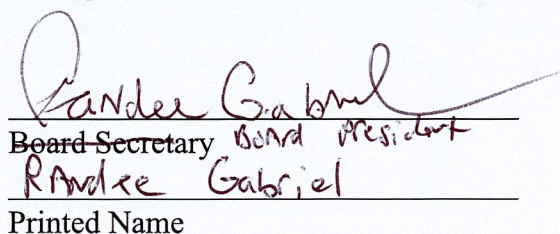 Randee Gabriel
Board Secretary Board President
Randee Gabriel
Printed Name